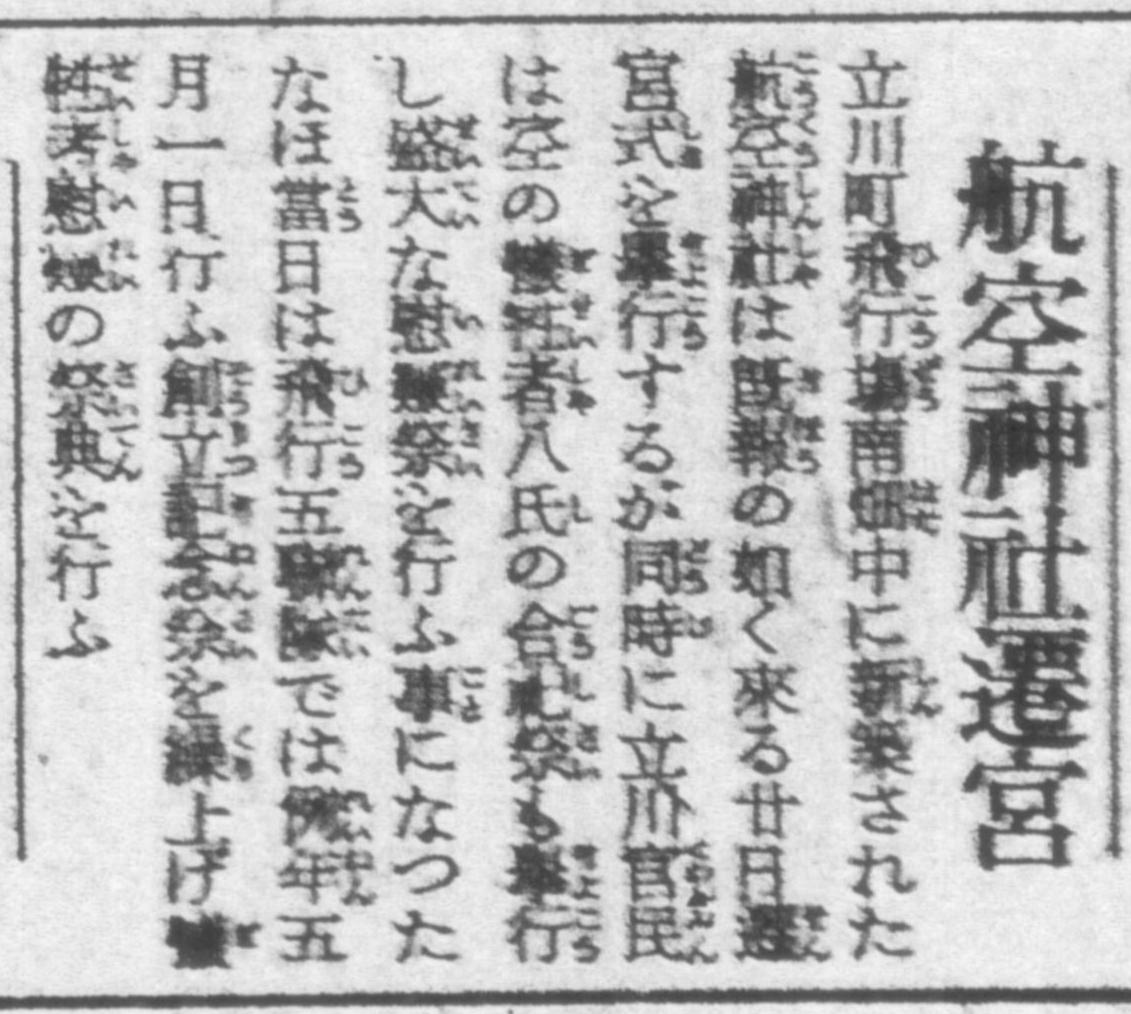 航空神社遷宮
立川町飛行場南畑中に新築された
航空神社は既報の如く來る廿日遷
宮式を擧行するが同時に立川官民
は空の犠牲者八氏の合祀祭も擧行
し盛大な慰霊祭を行ふ事になつた
なほ當日は飛行五聯隊では例年五
月一日行ふ創立記念祭を繰上げ犠
牲者慰霊の祭典を行ふ